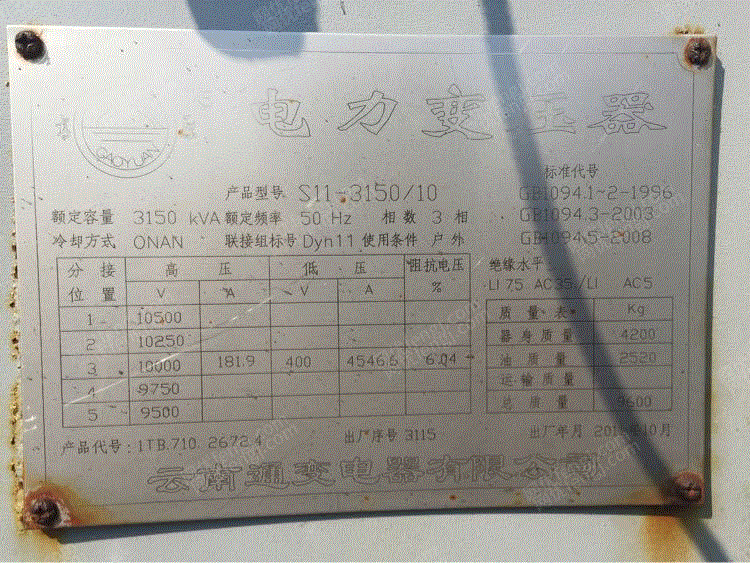 GAOYUAN
电力变压器
产品型号 S11-3150/10
标准代号
GB1094.1~2-1996
额定容量 3150 kVA 额定频率 50 Hz 相数 3 相 GB1094.3-2003
冷却方式 ONAN 联接组标号 Dyn11 使用条件 户外 GB1094.5-2008
分接位置 高压 低压 阻抗电压
V A V A %
1 10500
2 10250
3 10000 181.9 400 4546.6 6.04
4 9750
5 9500
绝缘水平
LI 75 AC35/LI AC5
质量表 Kg
器身质量 4200
油质量 2520
运输质量
总质量 9600
产品代号:1TB.710.2672.4 出厂序号 3115 出厂年月 10月
云南通变电器有限公司